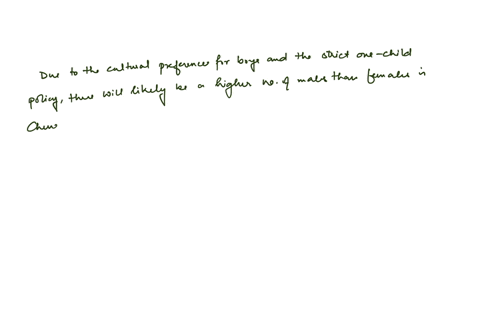 Due to the cultural preference for boys and the strict one-child
policy, there will likely be a higher no. of males than females in